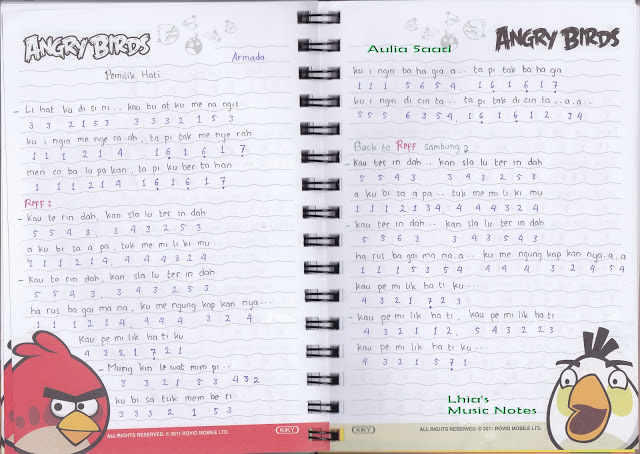 ANGRY BIRDS
Armada
Pemilik Hati
- Li hat ku di si ni.. kau bu at ku me na ngis
3 3 2 1 5 3 3 3 3 2 1 5 3
ku i ngin me nye ra ah, ta pi tak me nye rah
1 1 1 2 1 4 1 6 1 6 1 7
men co ba lu pa kan, ta pi ku ber ta han
1 1 1 2 1 4 1 6 1 6 1 7
Reff :
- Kau te rin dah, kan sla lu ter in dah
5 5 4 3, 3 4 3 2 5 3
a ku bi sa a pa, tuk me mi li ki mu
1 1 1 2 1 4, 4 4 4 3 2 4
- Kau te rin dah, kan sla lu ter in dah
5 5 4 3, 3 4 3 2 5 3
ha rus ba gai ma na, ku me ngung kap kan nya...
1 1 1 2 1 4, 4 4 4 3 2 4
Kau pe mi lik ha ti ku
4 3 2 1 7 2 1
- Mung kin le wat mim pi..
3 3 2 1 5 3 4 3 2
ku bi sa tuk mem be ri
3 3 3 2 1 5 3
ALL RIGHTS RESERVED. © 2011 ROVIO MOBILE LTD.
KIKY
Aulia Saad
ANGRY BIRDS
ku i ngin ba ha gia a.. ta pi tak ba ha gia
1 1 1 5 6 5 4 1 6 1 6 1 7
ku i ngin di cin ta.. ta pi tak di cin ta..a.a..
5 5 5 6 3 5 4 1 6 1 6 1 2 3 4
Back to Reff sambung 2
- Kau ter in dah.. kan sla lu ter in dah
5 5 4 3 3 4 3 2 5 3
a ku bi sa a pa.. tuk me mi li ki mu
1 1 1 2 1 3 4, 4 4 4 3 2 4
- kau ter in dah.. kan sla lu ter in dah
5 5 6 3 3 4 3 5 4 3
ha rus ba gai ma na a.. ku me ngung kap kan nya.a.a
1 1 1 5 3 5 4 4 4 3 2 4 5 4
kau pe mi lik ha ti ku...
4 3 2 1 7 2 3
- kau pe mi lik ha ti, kau pe mi lik ha ti
4 3 2 1 1 2, 5 4 3 2 2 3
kau pe mi lik ha ti ku...
4 3 2 1 5 7 1
Lhia's
Music Notes
KIKY
ALL RIGHTS RESERVED. © 2011 ROVIO MOBILE LTD.